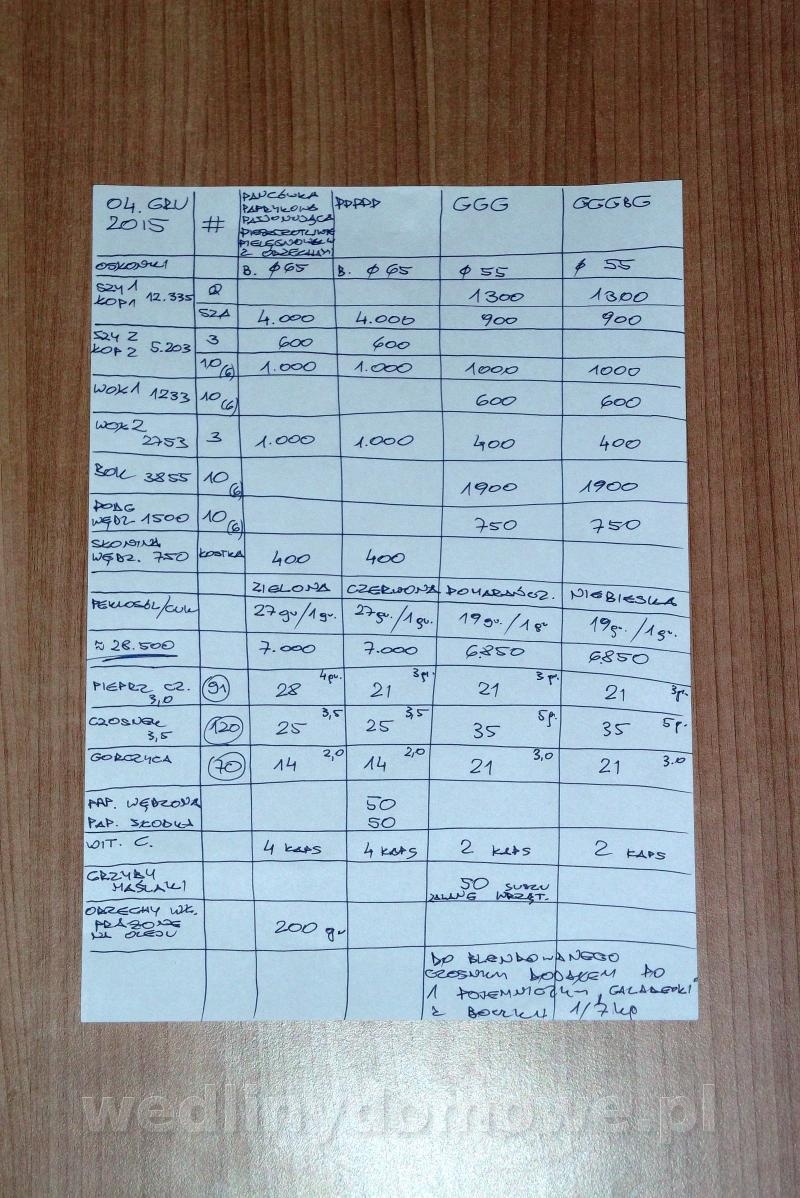 04. GRU # PAPRYKOWA PDPDD GGG GGGBG
2015
Z ORZECHAMI
OSŁONKI B. φ65 B. φ65 φ 55 φ 55
SZY 1 12.335 1300 1300
KOP 1 SZA 4.000 4.000 900 900
SZY 2 5.203 3 600 600
KOP 2 10(6) 1.000 1.000 1000 1000
WOŁ 1 1233 10(6) 600 600
WOŁ 2 2753 3 1.000 1.000 400 400
BOK 3855 10(6) 1900 1900
PODG
WĘDZ 1500 10(6) 750 750
SŁONINA
WĘDZ. 750 KOSTKA 400 400
ZIELONA CZERWONA POMARAŃCZ. NIEBIESKA
PEKLOSÓL/CUK 27gr/1gr. 27gr./1gr. 19gr./1gr 19gr./1gr.
≈ 28.500 7.000 7.000 6.850 6.850
PIEPRZ CZ. 3,0 91 28 4gr. 21 3gr. 21 3gr. 21 3gr.
CZOSNEK 3,5 120 25 3,5 25 3,5 35 5g. 35 5g.
GORCZYCA 70 14 2,0 14 2,0 21 3,0 21 3.0
PAP. WĘDZONA 50
PAP. SŁODKA 50
WIT. C. 4 KAPS 4 KAPS 2 KAPS 2 KAPS
GRZYBY 50 SUSZU
MAŚLAKI ZALANE WRZĄT.
ORZECHY WŁ.
PRAŻONE 200 gr
NA OLEJU
DO BLENDOWANEGO
CZOSNKU DODAŁEM PO
1 POJEMNICZKU "GALARETKI"
Z BOCZKU 1/7kg
wedlinydomowe.pl